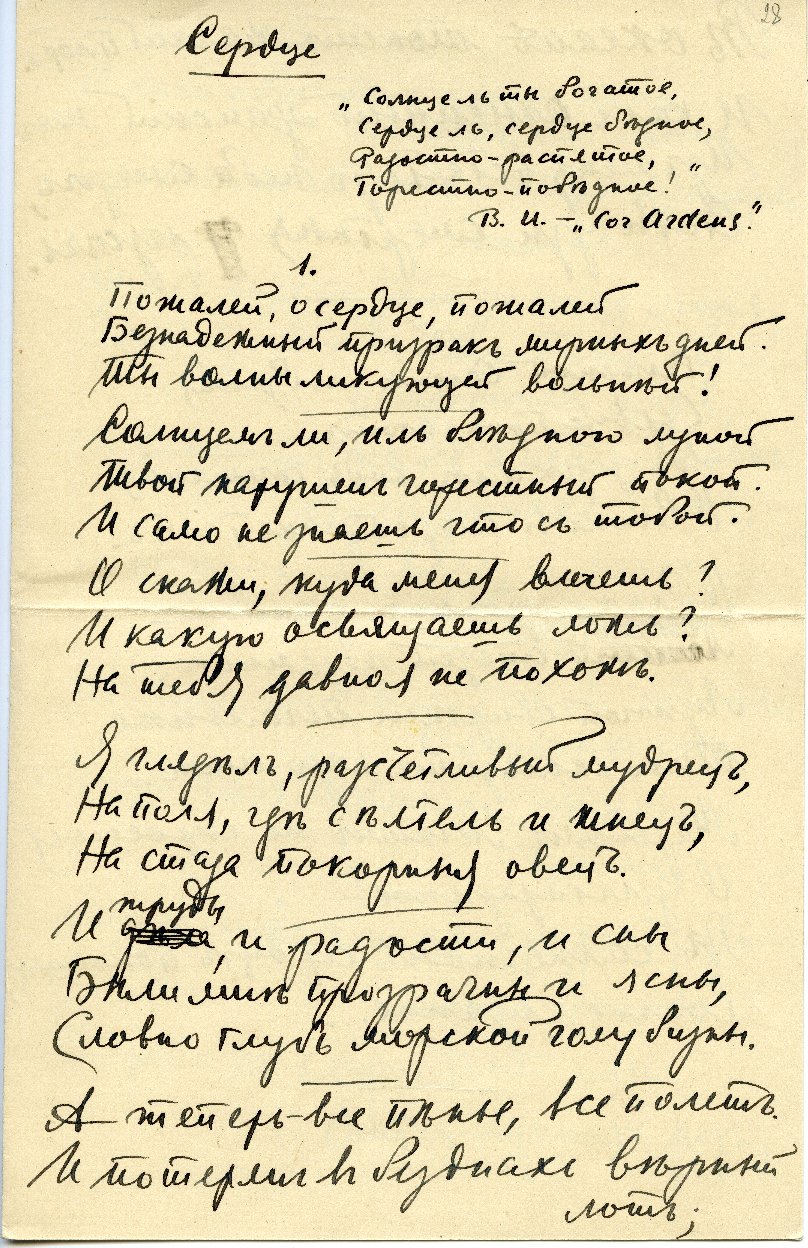 28
Сердце
„Солнце ль ты богатое,
Сердце ль, сердце бѣдное,
Радостно-распятое,
Горестно-побѣдное!"
В. И. – „Cor Ardens".
1.
Пожалей, о сердце, пожалей
Безнадежный призракъ мирныхъ дней.
Ты волны ликующей вольнѣй!
Солнцемъ ли, иль блѣдною луной
Твой нарушенъ горестный покой.
И само не знаешь что съ тобой.
О скажи, куда меня влечешь?
И какую освящаешь ложь?
На тебя давно я не похожъ.
Я глядѣлъ, разсчетливый мудрецъ,
На поля, гдѣ сѣятель и жнецъ,
На стада покорныя овецъ.
И труды, и радости, и сны
Были мнѣ прозрачны и ясны,
Словно глубь морской голубизны.
А теперь – все пѣнье, все полетъ.
И потерянъ въ безднахъ вѣрный
лотъ;